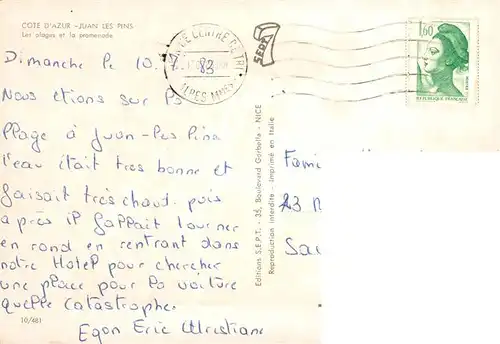 COTE D'AZUR - JUAN LES PINS
Les plages et la promenade
Dimanche le 10.
Nous etions sur la
plage à Juan-les Pins
l'eau était tres bonne et
faisait tres chaud. puis
après il fallait tourner
en rond en rentrant dans
notre Hotel pour chercher
une place pour la voiture
quelle catastrophe.
Egon Eric Christiane
10/481
Editions S.E.P.T. - 35, Boulevard Gorbella - NICE
Reproduction interdite - Imprimé en Italie
CENTRE DE TRI
83
ALPES MMES
SEPT
1,60
REPUBLIQUE FRANÇAISE
Fami
23
Sa